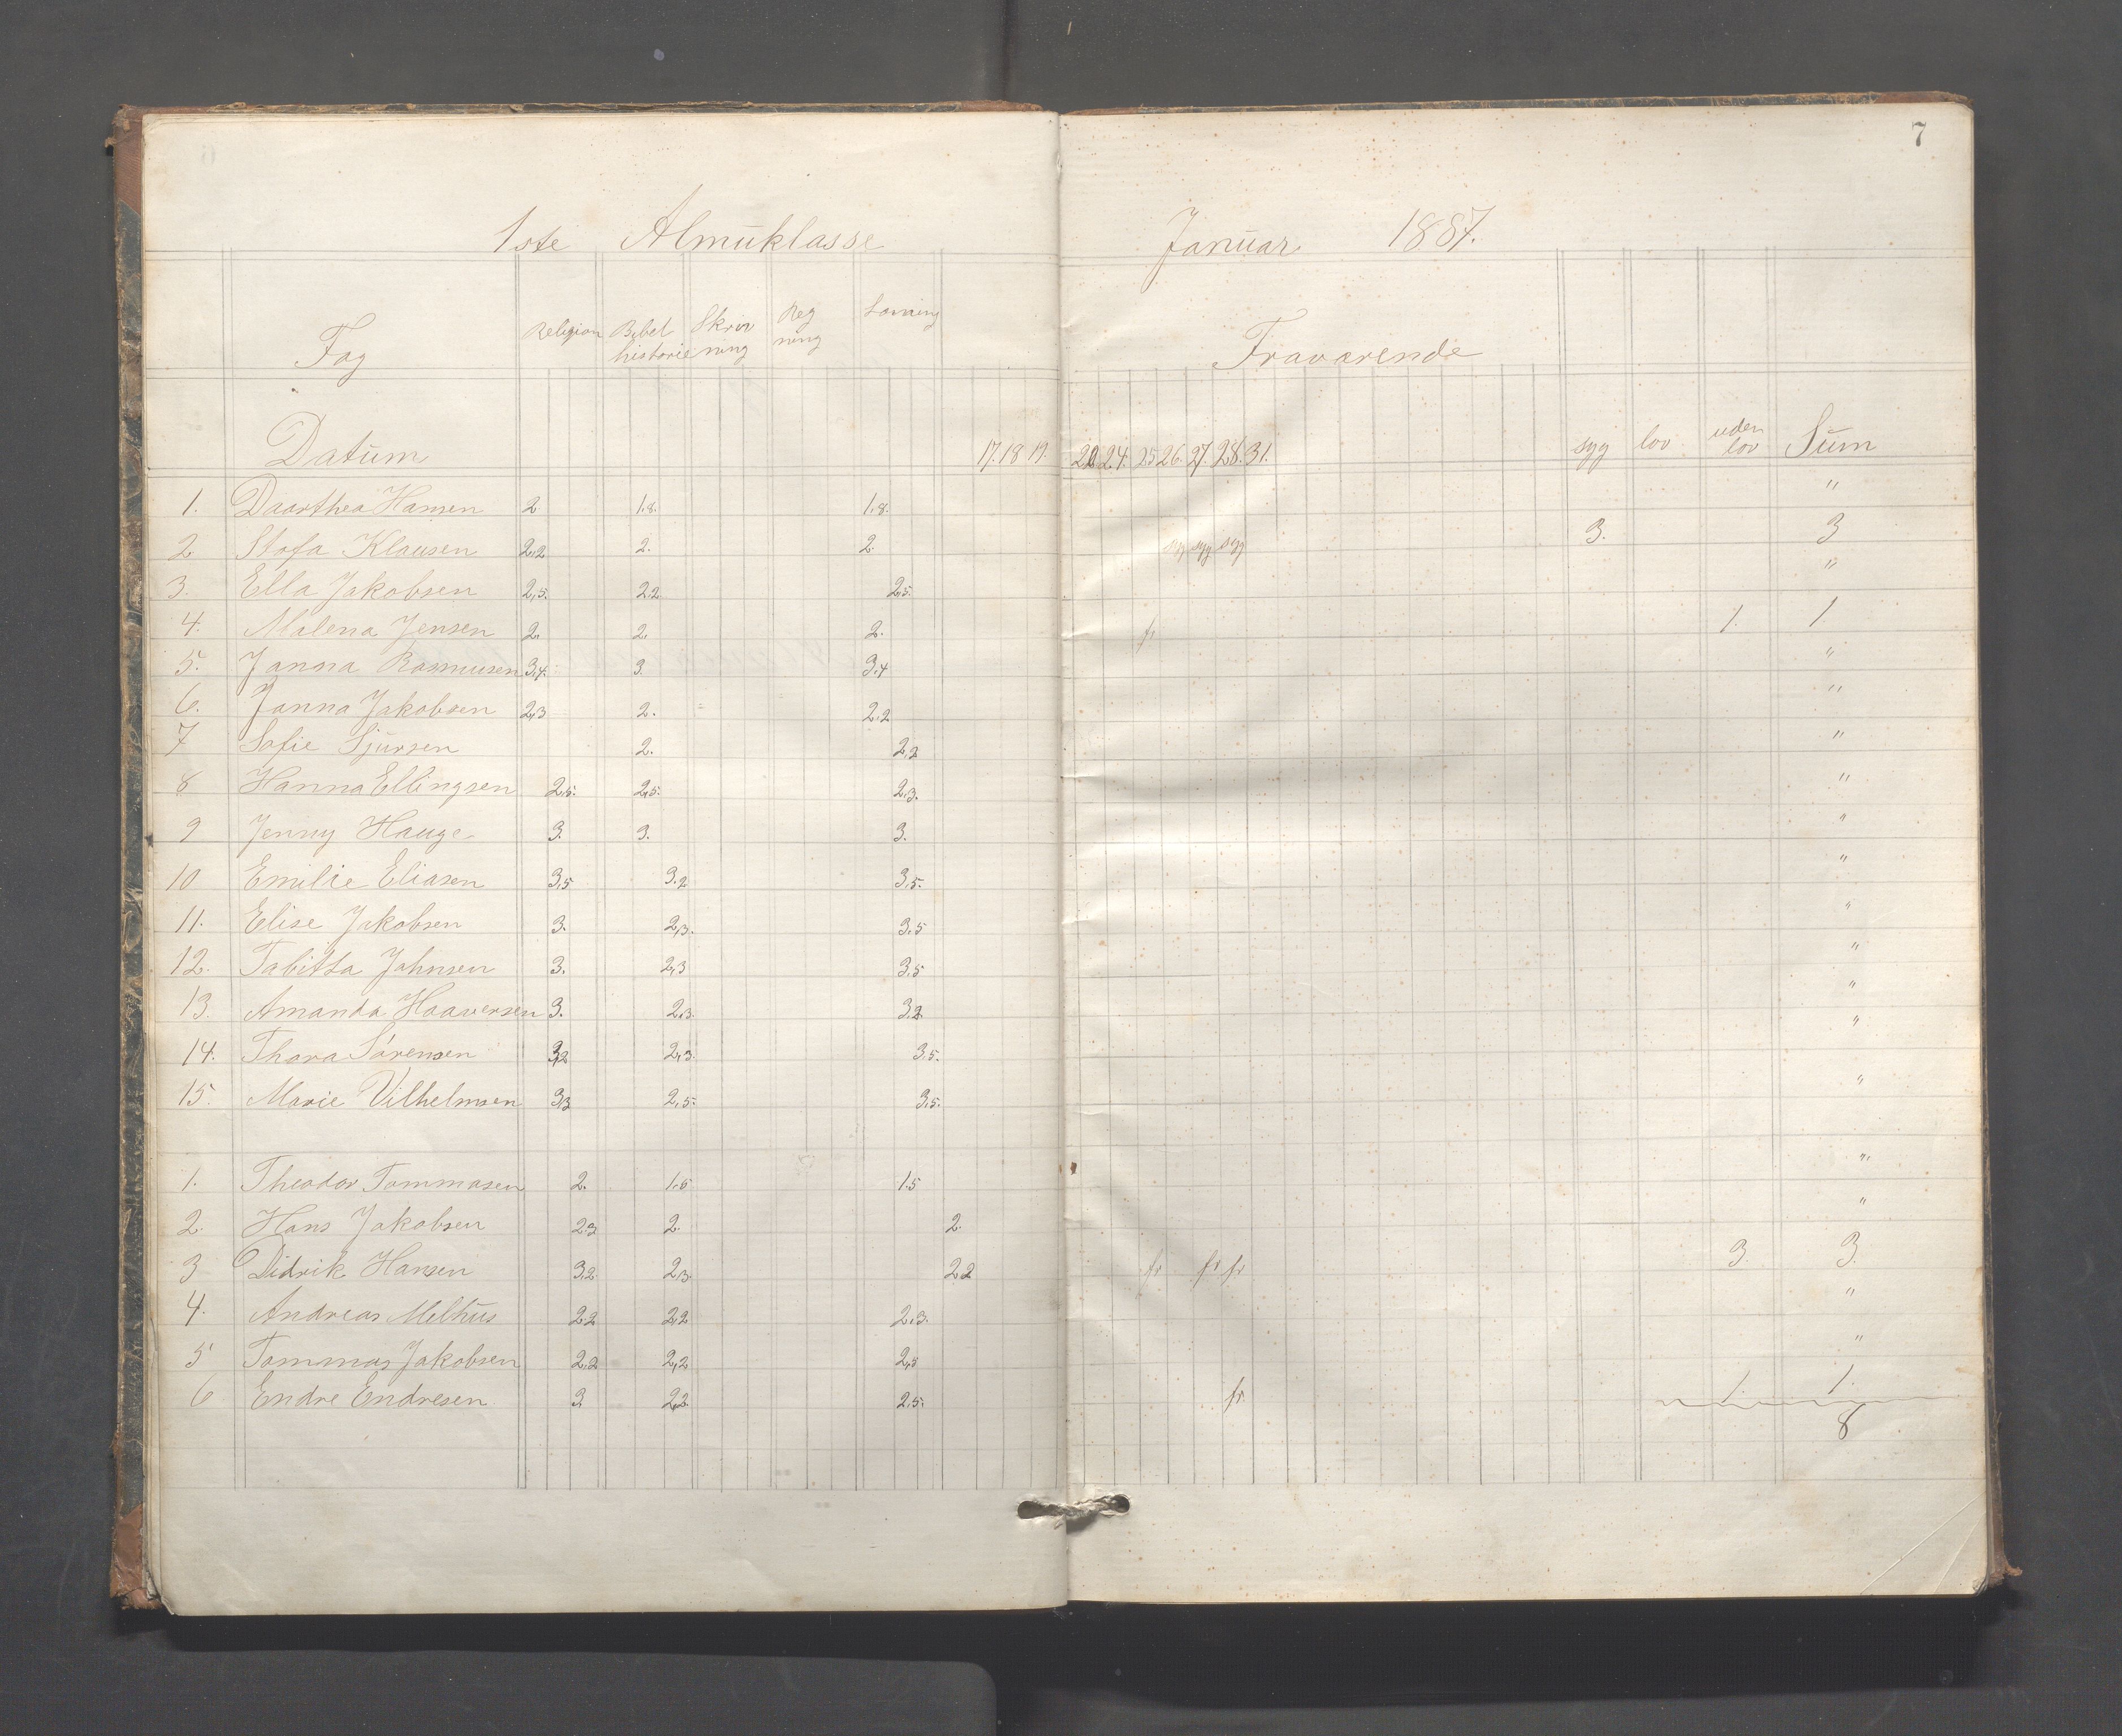 7
1ste Almuklasse Januar 1887.
Fag Religion Bibel historie Skriv ning Reg ning Læsning Fraværende
Datum 17. 18 19. 20. 24. 25 26. 27. 28. 31. syg lov uden lov Sum
1. Daarthea Hansen 2 1.8. 1.8. "
2 Stofa Klausen 2,2 2. 2. syg syg syg 3. 3
3. Ella Jakobsen 2,5. 2.2. 2,5. "
4. Malena Jensen 2. 2. 2. fr 1. 1
5. Janna Rasmusen 3,4. 3. 3,4 "
6. Janna Jakobsen 2,3 2. 2.2 "
7 Sofie Sjursen 2. 2,2 "
8 Hanna Ellingsen 2,5. 2,5. 2,3. "
9 Jenny Hauge 3. 3. 3. "
10 Emilie Eliasen 3,5 3.2 3,5. "
11. Elise Jakobsen 3. 2,3. 3.5 "
12. Tabitta Johnsen 3. 2,3 3.5 "
13. Amanda Haaversen 3. 2,3. 3.2. "
14. Thora Sörensen 3,2 2,3. 3.5. "
15. Marie Vilhelmsen 3,3 2,5. 3,5. "
1. Theodor Tommasen 2. 1.5 1.5 "
2. Hans Jakobsen 2.3 2. 2. "
3 Didrik Hansen 3,2 2,3. 2.2 fr fr fr 3. 3.
4. Andreas Melhus 2.2 2,2 2,3. "
5 Tommas Jakobsen 2.2 2,2 2,5 "
6 Endre Endresen 3. 2,2. 2.5. fr. 1. 1.
8